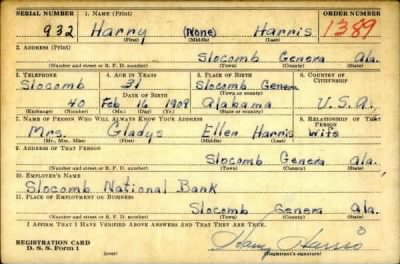 SERIAL NUMBER 1. NAME (Print) ORDER NUMBER
932 Harry (None) Harris 1389
(First) (Middle) (Last)
2. ADDRESS (Print)
Slocomb Genera Ala.
(Number and street or R. F. D. number) (Town) (County) (State)
3. TELEPHONE 4. AGE IN YEARS 5. PLACE OF BIRTH 6. COUNTRY OF CITIZENSHIP
Slocomb 31 Slocomb Genera
DATE OF BIRTH (Town or county)
40 Feb 16 1909 Alabama U.S.A.
(Exchange) (Number) (Mo.) (Day) (Yr.) (State or country)
7. NAME OF PERSON WHO WILL ALWAYS KNOW YOUR ADDRESS 8. RELATIONSHIP OF THAT PERSON
Mrs. Gladys Ellen Harris Wife
(Mr., Mrs., Miss) (First) (Middle) (Last)
9. ADDRESS OF THAT PERSON
Slocomb Genera Ala.
(Number and street or R. F. D. number) (Town) (County) (State)
10. EMPLOYER'S NAME
Slocomb National Bank
11. PLACE OF EMPLOYMENT OR BUSINESS
Slocomb Genera Ala
(Number and street or R. F. D. number) (Town) (County) (State)
I AFFIRM THAT I HAVE VERIFIED ABOVE ANSWERS AND THAT THEY ARE TRUE.
REGISTRATION CARD
D. S. S. Form 1 Harry Harris
(Registrant's signature)